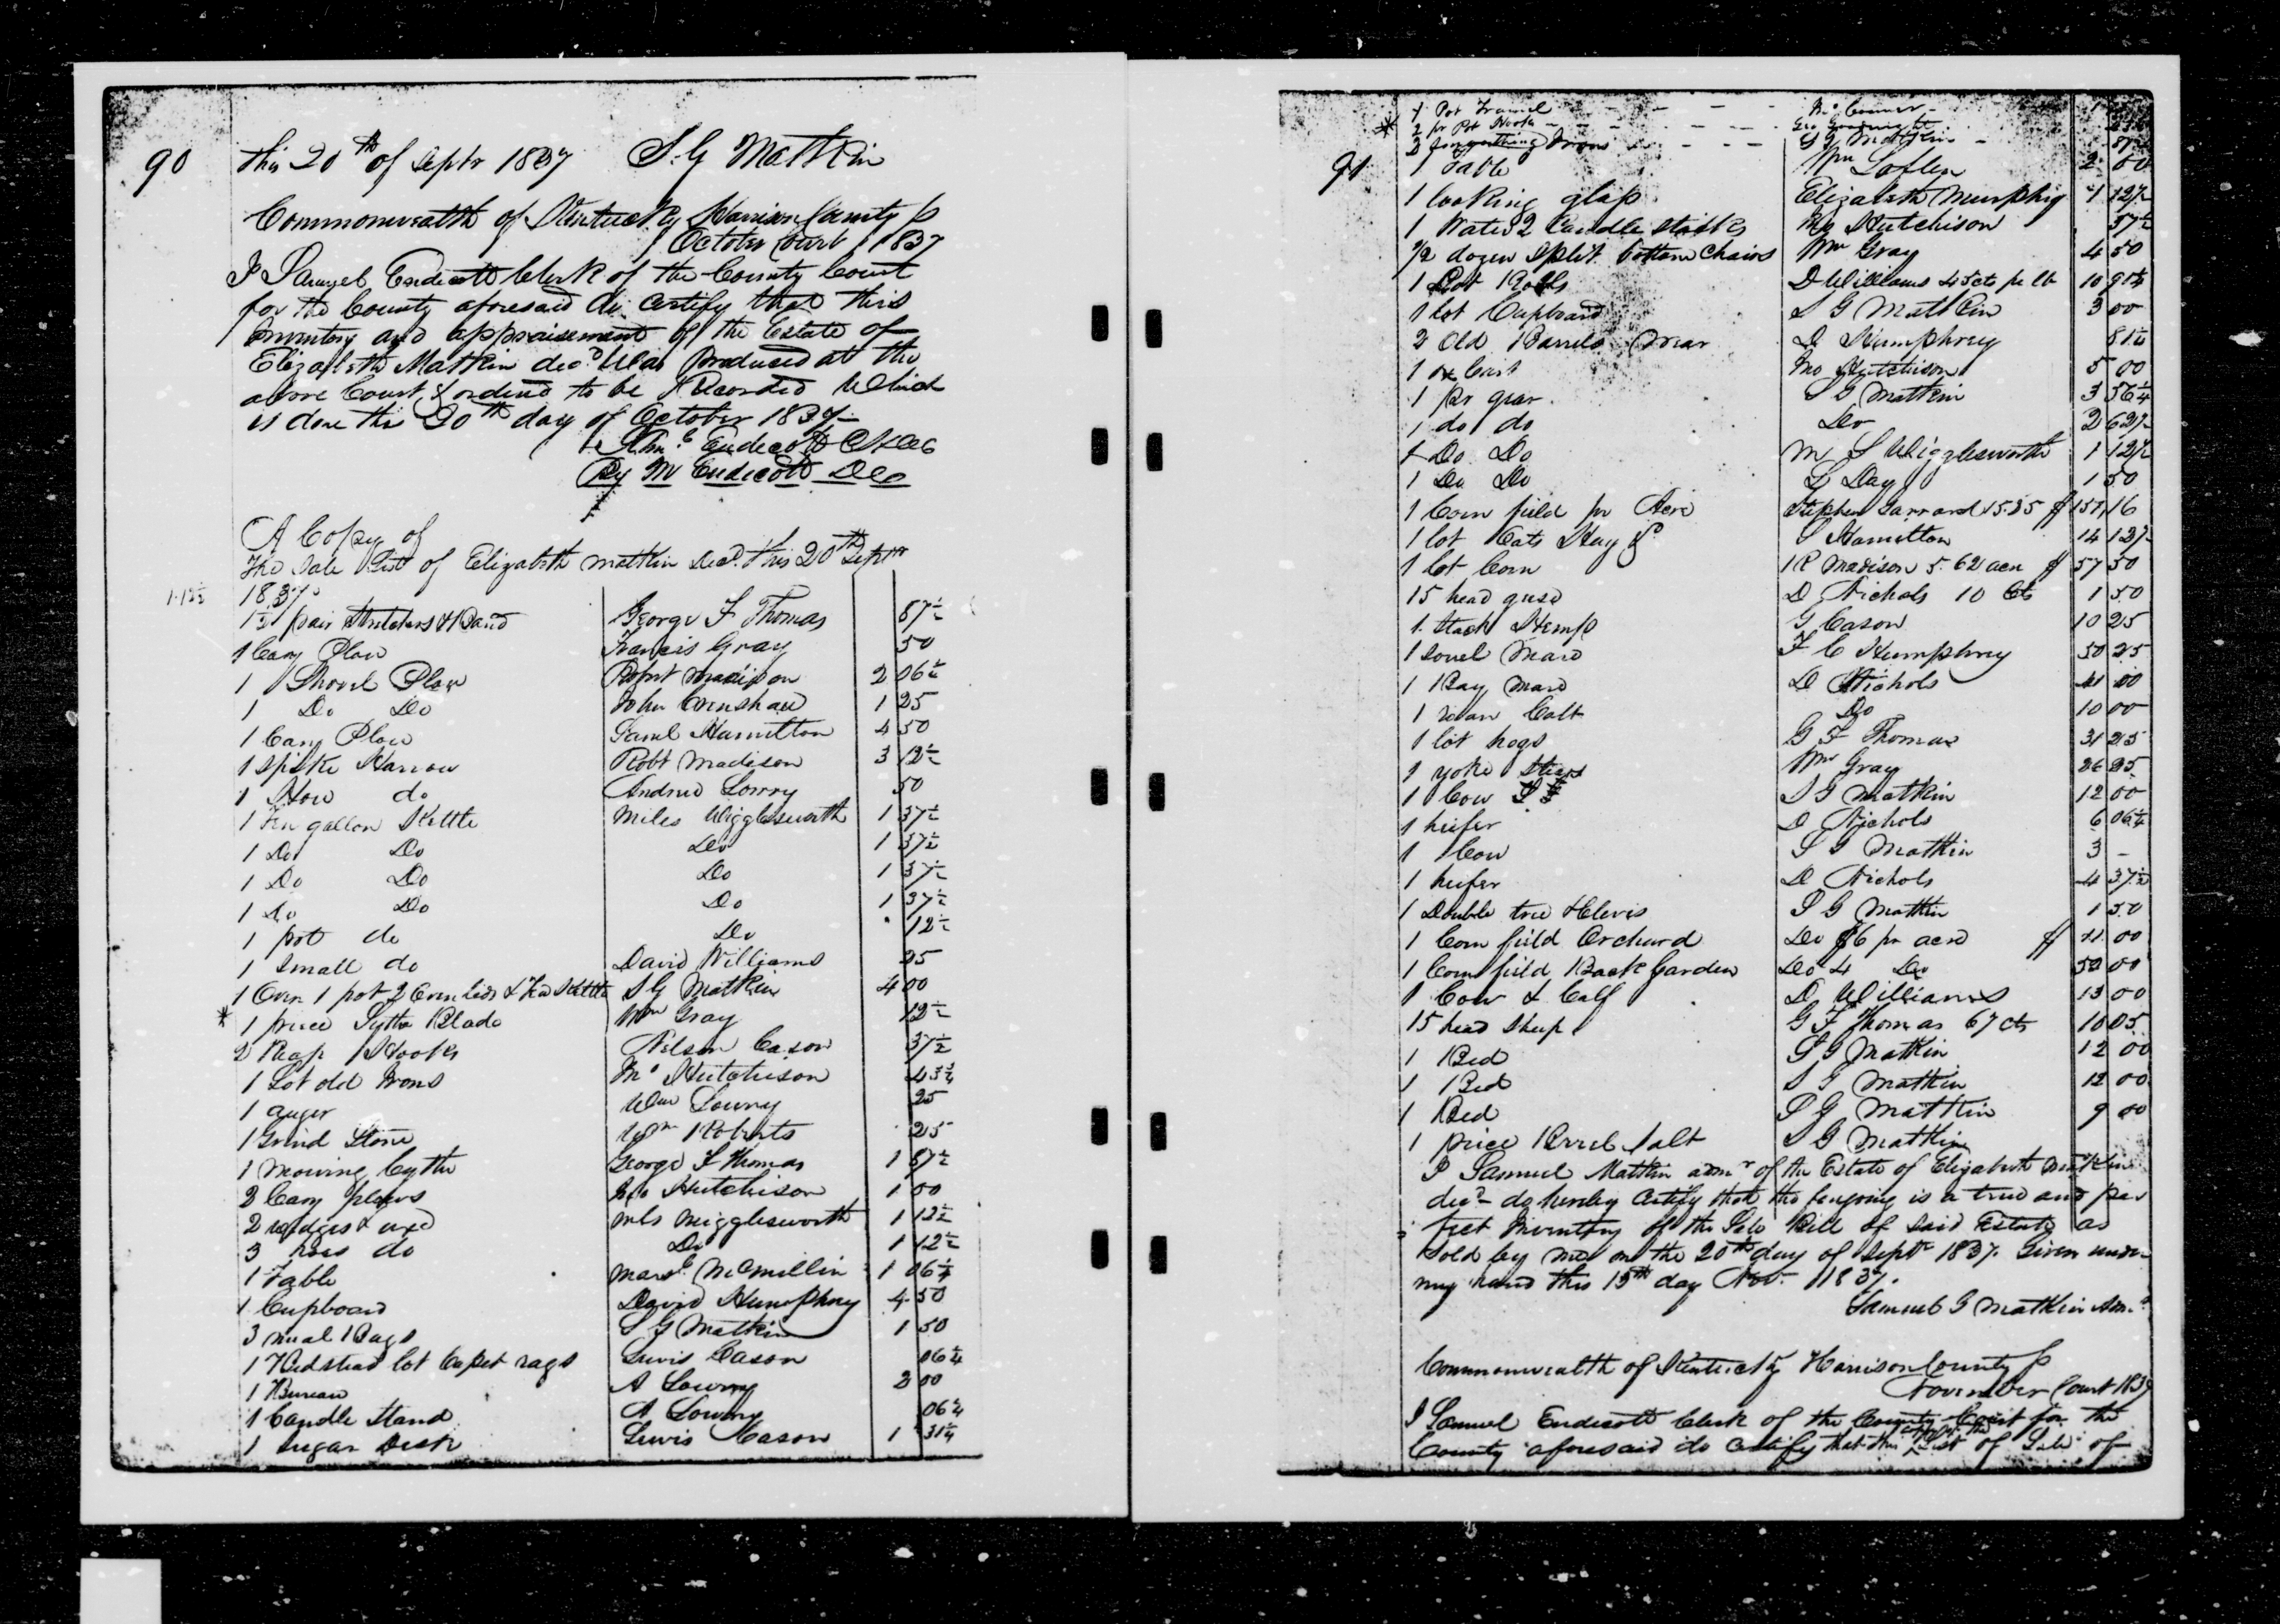 90 this 20th of Septr 1837 S. G Matkin
Commonwealth of Kentucky Harrison County S
October Court 1837
I Samuel Endicott Clerk of the County Court
for the County aforesaid do certify that this
Inventory and appraisement of the Estate of
Elizabeth Matkin decd Was produced at the
above Court & ordend to be Recorded Which
is done this 20th day of October 1837
Endecott
By M Endecott
A Copy of
The Sale List of Elizabeth Matkin Decd. this 20th Septr
1837
1 pair Stretchers & Band George F Thomas 87½
1 Cary Plow Francis Gray 50
1 Shovel Plow Robert Madison 2 06¼
1 Do Do John Crenshaw 1 25
1 Cary Plow Saml Hamilton 4 50
1 Spike Harrow Robt Madison 3 12½
1 How do Andrew Lowry 50
1 Ten gallon Kettle Miles Wigglesworth 1 37½
1 Do Do Do 1 37½
1 Do Do Do 1 37½
1 Do Do Do 1 37½
1 pot do Do 12½
1 Small do David Williams 25
1 Oven 1 pot 2 Oven lids & Tea Kettle S G Matkin 4 00
* 1 piece Sythe Blade Wm Gray 12½
2 Reap Hooks Nelson Cason 37½
1 Lot old Irons Jno Hutchison 43¾
1 auger Wm Lowry 25
1 Grind Stone Wm Roberts 25
1 mowing Cythe George F Thomas 1 87½
2 Cary plows Jno Hutchison 1 00
2 wedges & axe Mls Wigglesworth 1 12½
3 hoes do Do 1 12½
1 Table McMillin 1 06¼
1 Cupboard David Humphrey 4 50
3 meal Bags S G Matkin 1 50
1 Bedstead lot Carpet rags Lewis Cason 06¼
1 Bureau A Lowry 2 00
1 Candle Stand A Lowry 06¼
1 Sugar Desk Lewis Cason 1 31¼
1 Pot Tramel
* 2 pr Pot Hooks
2 Irons S G Matkin
91 1 Table Wm Laflen 2 00
1 looking glass Elizabeth Murphy 1 12½
1 Waiter 2 Candle Sticks Jno Hutchison 37½
½ dozen Split bottom Chairs Wm Gray 4 50
1 Lot D Williams pr lb 10
1 lot Cupboard S G Matkin 3 00
2 Old Barrels D Humphrey 81¼
1 ox Cart Jno Hutchison 5 00
1 pr gear S G Matkin 3 56¼
1 do do Do 2 62½
1 Do Do M S Wigglesworth 1 12½
1 Do Do L Day 1 50
1 Corn field pr Acre Stephen Garrard
1 lot Oats Hay & S Hamilton 14 12½
1 lot Corn R Madison 5.62 acre 57 50
15 head geese D Nichols 10 cts 1 50
1 Stack Hemp G Cason 10 25
1 Sorrel Mare F C Humphrey 50 25
1 Bay Mare D Nichols 41 00
1 roan Colt Do 10 00
1 lot hogs G F Thomas 31 25
1 yoke Steers Wm Gray 26 25
1 Cow S G Matkin 12 00
1 heifer D Nichols 6 06¼
1 Cow S G Matkin 3 –
1 heifer D Nichols 4 37½
1 Double tree & Clevis S G Matkin 1 50
1 Corn field Orchard Do $6 pr acre 11 00
1 Corn field Back Garden Do 4 Do 50 00
1 Cow & Calf D Williams 13 00
15 head Sheep G F Thomas 67 cts 10 05
1 Bed S G Matkin 12 00
1 Bed S G Matkin 12 00
1 Bed S G Matkin 9 00
1 piece Salt S G Matkin
I Samuel Matkin admr of the Estate of Elizabeth Matkin
decd do hereby Certify that the foregoing is a true and per
fect Inventory of the Sale Bill of Said Estate as
Sold by me on the 20th day of Septr 1837. Given under
my hand this 15th day Nov. 1837.
Samuel G Matkin Adm
Commonwealth of Kentucky Harrison County S
November Court 1837
I Samuel Endicott Clerk of the County Court for the
County aforesaid do certify that this List of Sale of